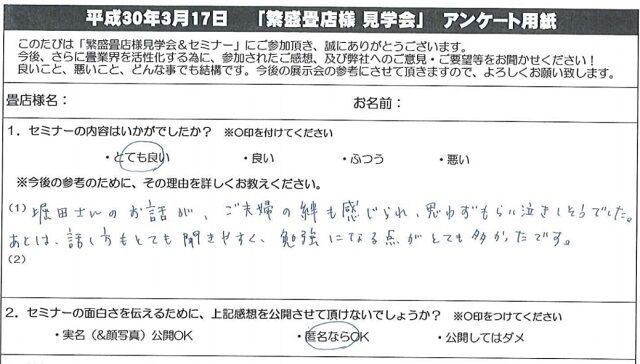 平成30年3月17日　「繁盛畳店様 見学会」　アンケート用紙
このたびは「繁盛畳店様見学会＆セミナー」にご参加頂き、誠にありがとうございます。
今後、さらに畳業界を活性化する為に、参加されたご感想、及び弊社へのご意見・ご要望等をお聞かせください！
良いこと、悪いこと、どんな事でも結構です。今後の展示会の参考にさせて頂きますので、よろしくお願い致します。
畳店様名：　お名前：
1．セミナーの内容はいかがでしたか？　※○印を付けてください
・とても良い　・良い　・ふつう　・悪い
※今後の参考のために、その理由を詳しくお教えください。
(1) 堀田さんのお話が、ご夫婦の絆も感じられ、思わずもらい泣きしそうでした。
あとは、話し方もとても聞きやすく、勉強になる点がとても多かったです。
(2)
2．セミナーの面白さを伝えるために、上記感想を公開させて頂けないでしょうか？　※○印をつけてください
・実名（&顔写真）公開OK　・匿名ならOK　・公開してはダメ